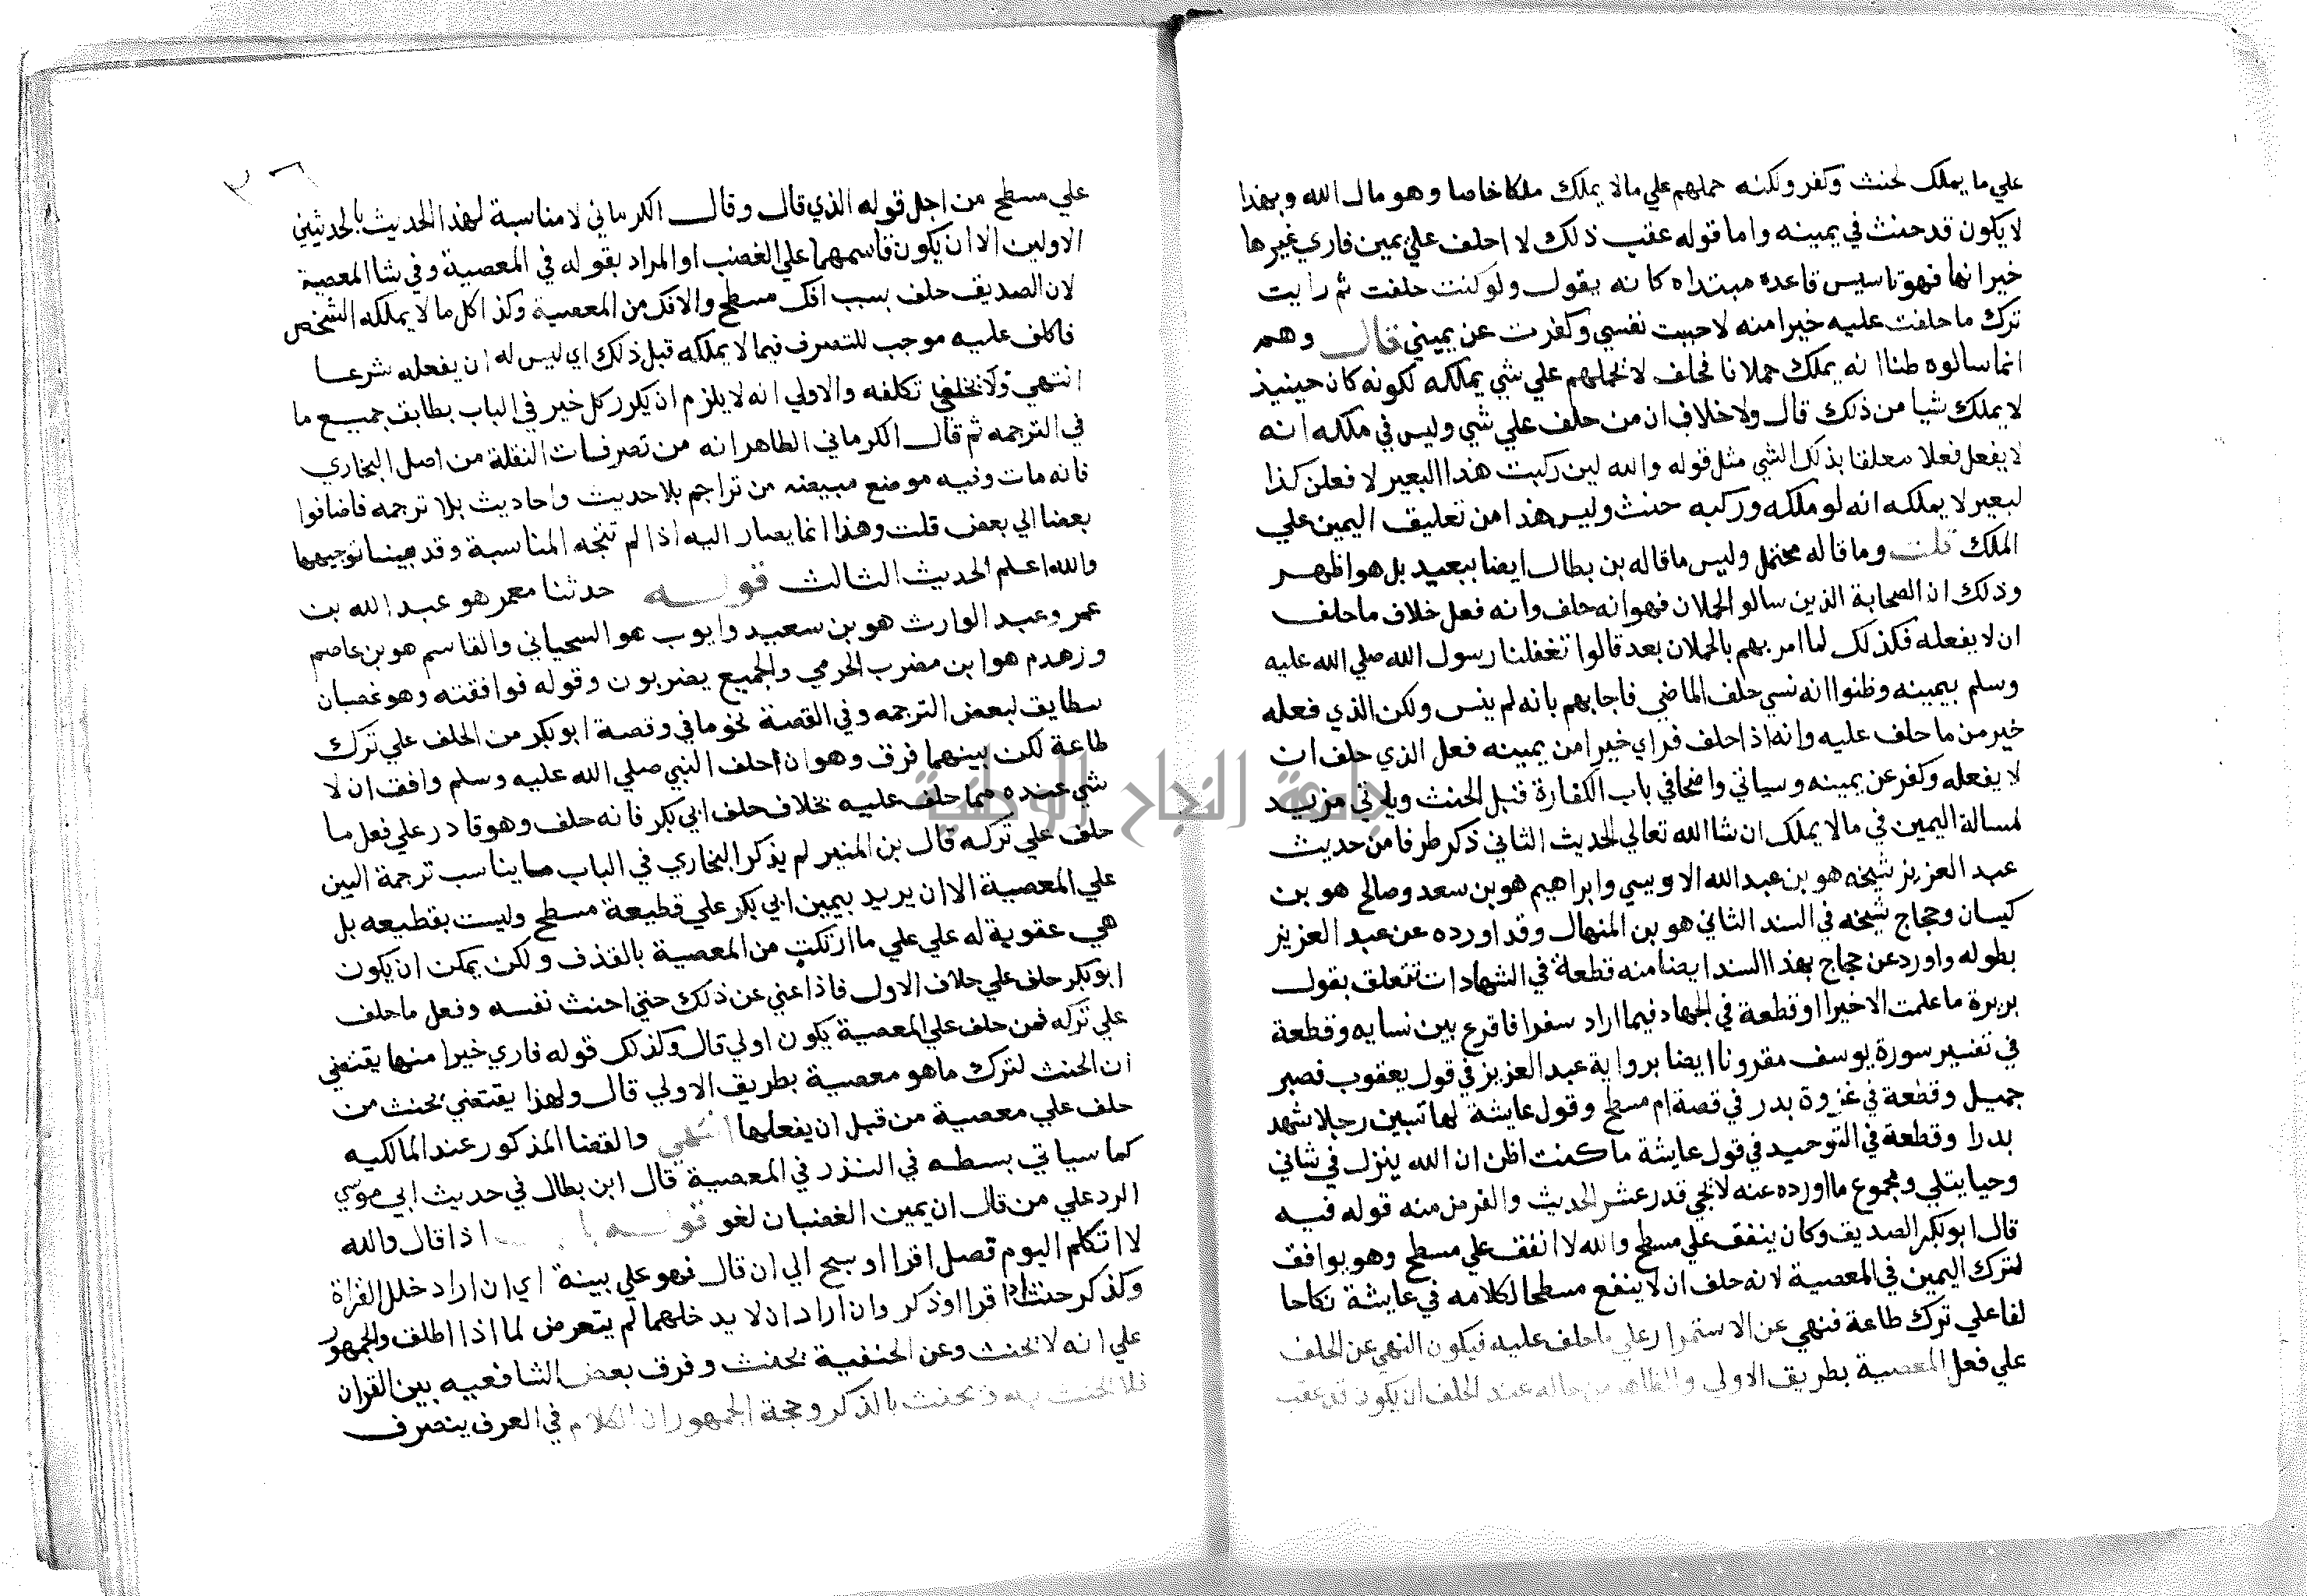 علي ما يملك لحنث وكفر ولكنه حملهم علي مالا يملك ملكا خاصا وهو مال الله وبهذا
لا يكون قد حنث في يمينه واما قوله عقب ذلك لا احلف علي يمين فاري غيرها
خيرا نها فهو تاسيس قاعده مبتداه كانه يقول ولو كنت حلفت ثم رايت
ترك ما حلفت عليه خيرا منه لاحببت نفسي وكفرت عن يميني قال وهم
انما سالوه طنا انه يملك حملانا فحلف لا يحملهم علي شي يملكه لكونه كان حينيذ
لا يملك شيا من ذلك قال ولا خلاف ان من حلف علي شي وليس في ملكه انه
لا يفعل فعلا معلقا بذلك الشي مثل قوله والله لين ركبت هذا البعير لا فعلن كذا
لبعير لا يملكه انه لو ملكه وركبه حنث وليس هذا من تعليق اليمين علي
الملك قلت وما قاله محتمل وليس ما قاله بن بطال ايضا ببعيد بل هو اظهر
وذلك ان الصحابة الذين سالو الحملان فهوا انه حلف وانه فعل خلاف ما حلف
ان لا يفعله فكذلك لما امر بهم بالحملان بعد قالوا تغفلنا رسول الله صلي الله عليه
وسلم بيمينه وظنوا انه نسي حلف الماضي فاجابهم بانه لم ينس ولكن الذي فعله
خير من ما حلف عليه وانه اذا حلف فراي خيرا من يمينه فعل الذي حلف ان
لا يفعله وكفر عن يمينه وسياتي واضحا في باب الكفارة قبل الحنث وياتي مزيد
لمسالة اليمين في مالا يملك ان شا الله تعالي الحديث الثاني ذكر طرفا من حديث
عبد العزيز شيخه هو بن عبد الله الاويسي وابراهيم هو بن سعد وصالح هو بن
كيسان وحجاج شيخه في السند الثاني هو بن المنهال وقد اورده عن عبد العزيز
بطوله واورد عن حجاج بهذا السند ايضا منه قطعة في الشهادات تتعلق بقول
بريرة ما علمت الا خيرا وقطعة في الجهاد فيما اراد سفرا فاقرع بين نسايه وقطعة
في تفسير سورة يوسف مقرونا ايضا برواية عبد العزيز في قول يعقوب فصبر
جميل وقطعة في غزوة بدر في قصة ام مسطح وقول عايشة لها تسبين رجلا شهد
بدرا وقطعة في التوحيد في قول عايشة ما كنت اظن ان الله ينزل في شاني
وحيا يتلي ومجموع ما اورده عنه لا يجي قدر عشر الحديث والغرض منه قوله فيه
قال ابو بكر الصديق وكان ينفق علي مسطح والله لا انفق علي مسطح وهو يوافق
لترك اليمين في المعصية لانه حلف ان لا ينفع مسطحا لكلامه في عايشة نكاحا
لفا علي ترك طاعة فنهي عن الاستمرار علي ما حلف عليه فيكون النهي عن الحلف
علي فعل المعصية بطريق الاولي والظاهر من حاله عند الحلف ان يكون قد عقب
٣٦
علي مسطح من اجل قوله الذي قال وقال الكرماني لا مناسبة لهذا الحديث بالحديثين
الاولين الا ان يكون قاسمهما علي الغضب او المراد بقوله في المعصية وفي شا المعصية
لان الصديق حلف بسبب افك مسطح والافك من المعصية وكذا كل ما لا يملكه الشخص
فاكلف عليه موجب للتصرف فيما لا يملكه قبل ذلك اي ليس له ان يفعله شرعا
انتهي ولا يخفي تكلفه والاولي انه لا يلزم ان يكرر كل خير في الباب بطابق جميع ما
في الترجمه ثم قال الكرماني الطاهر انه من تصرفات النقلة من اصل البخاري
فانه مات وفيه موضع مبيضه من تراجم بلا حديث واحاديث بلا ترجمه فاضافوا
بعضا الي بعض قلت وهذا انما يصار اليه اذا لم تتجه المناسبة وقد بينا توجيهها
والله اعلم الحديث الثالث قوله حدثنا معمر هو عبد الله بن
عمر وعبد الوارث هو بن سعيد وايوب هو السحياني والقاسم هو بن عاصم
وزهدم هو ابن مضرب الجرمي والجميع يضربون وقوله فوافقته وهو غضبان
سطايق لبعض الترجمه وفي القصة نحو ما في وقصة ابو بكر من الحلف علي ترك
طاعة لكن بينهما فرق وهو ان احلف النبي صلي الله عليه وسلم وافق ان لا
شي عنده مما حلف عليه بخلاف حلف ابي بكر فانه حلف وهو قادر علي فعل ما
حلف علي تركه قال بن المنير لم يذكر البخاري في الباب ما يناسب ترجمة اليمن
علي المعصية الا ان يريد بيمين ابي بكر علي قطيعة مسطح وليست بقطيعه بل
هي عقوبة له علي علي ما ارتكب من المعصية بالقذف ولكن يمكن ان يكون
ابو بكر حلف علي خلاف الاول فاذا عني عن ذلك حتي احنث نفسه وفعل ما حلف
علي تركه فمن حلف علي المعصية يكون اولي قال وكذلك قوله فاري خيرا منها يقتضي
ان الحنث لترك ما هو معصية بطريق الاولي قال ولهذا يقتضي بحنث من
حلف علي معصية من قبل ان يفعلها انتهي والقضا المذكور عند المالكيه
كما سياتي بسطه في النذر في المعصية قال ابن بطال في حديث ابي موسي
الرد علي من قال ان يمين الغضبان لغو قوله باب اذا قال والله
لا اتكلم اليوم فصل اقرا او سبح الي ان قال فهو علي بينة اي ان اراد خلل القراة
وكذكر حنث اذا قرا او ذكر وان اراد ان لا يدخلهما لم يتعرض لما اذا اطلق والجمهور
علي انه لا يحنث وعن الحنفية يحنث وفرق بعض الشافعيه بين القران
فلا يحنث به ويحنث بالذكر وحجة الجمهور ان الكلام في العرف ينصرف